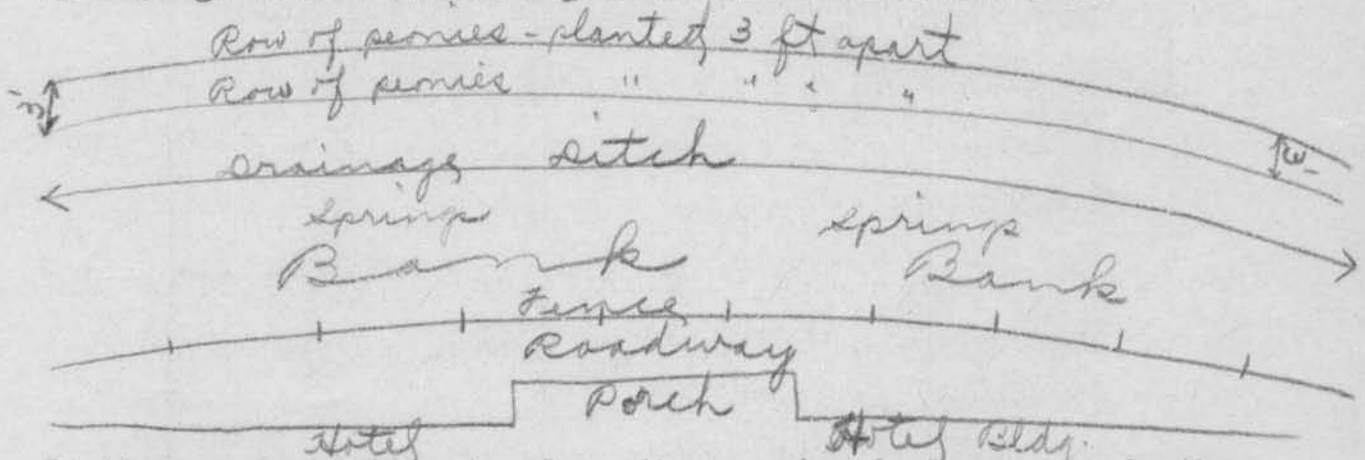 Row of peonies - planted 3 ft apart
Row of peonies " " " "
3'
3'
Drainage Ditch
Springs Springs
Bank Bank
Fence
Roadway
Porch
Hotel Hotel Bldg.